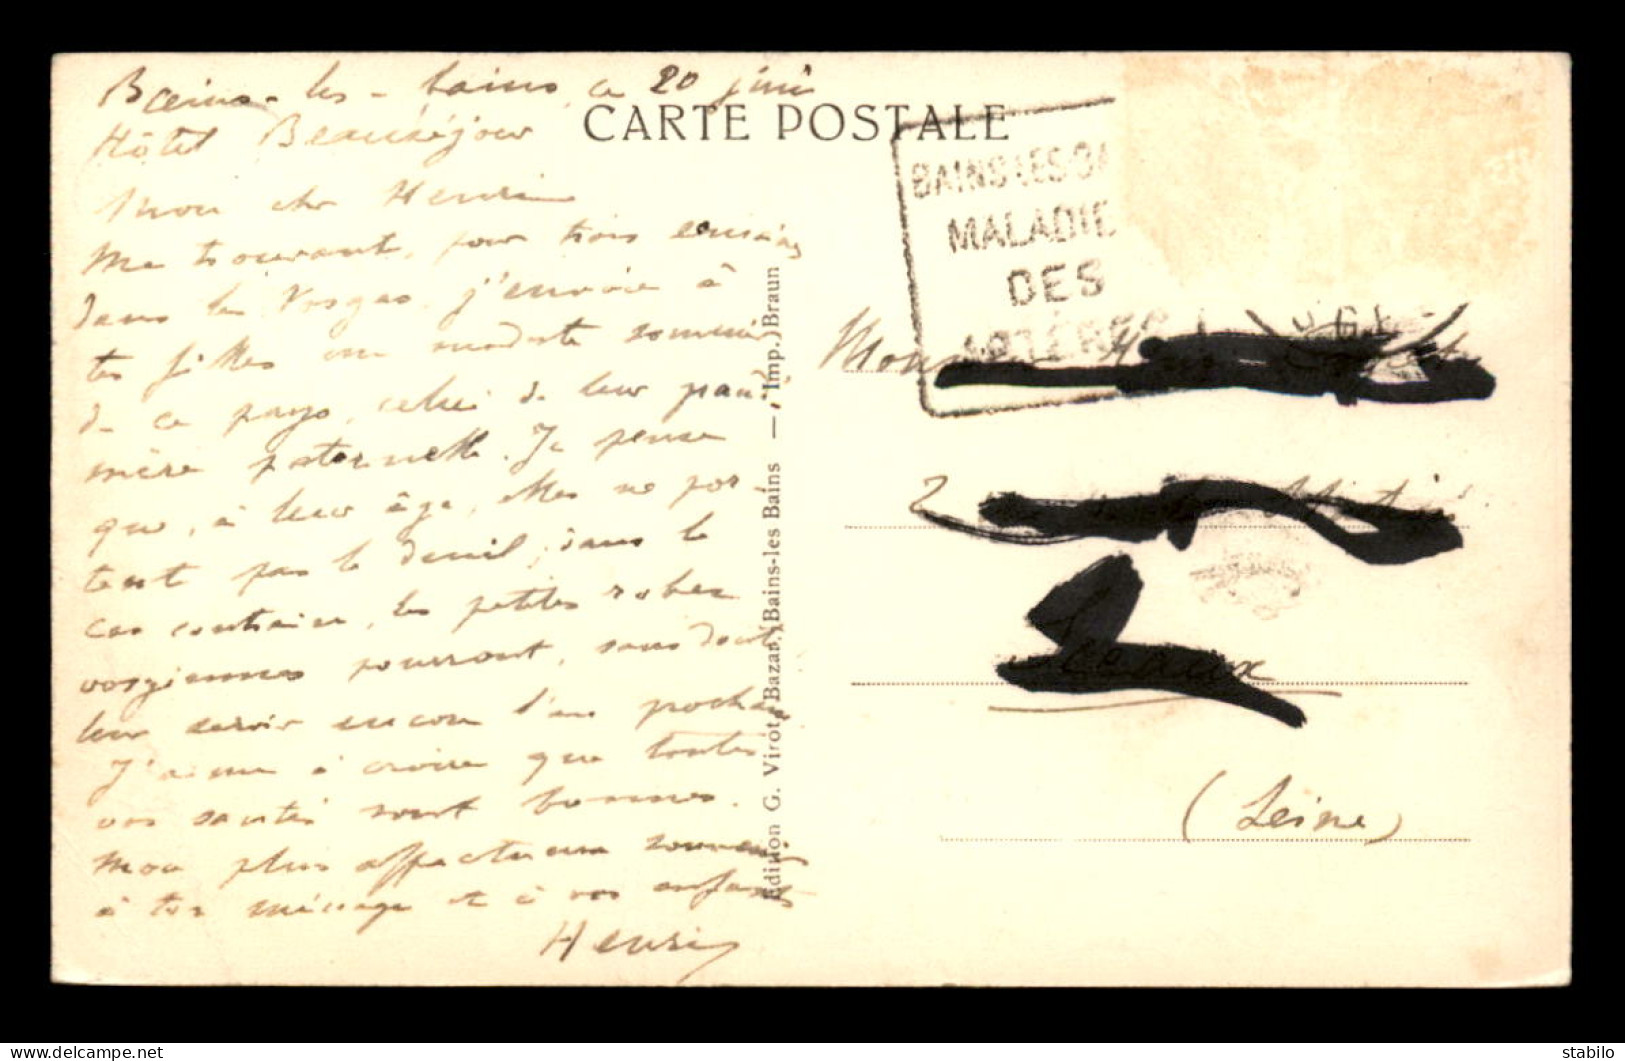 Bains-les-bains, ce 20 juin
Hôtel Beauséjour
Mon cher Henri
Me trouvant, pour trois semaines
dans les Vosges, j'envoie à
tes filles un modeste souvenir
de ce pays, celui de leur grand
mère paternelle. Je pense
que, à leur âge, elles ne por-
tent pas le deuil, dans le
cas contraire, les petites robes
vosgiennes pourront, sans doute
leur servir encore l'an prochain
J'aime à croire que toutes
vos santés sont bonnes.
Mon plus affectueux souvenir
à ton ménage et à vos enfants
Henri
CARTE POSTALE
Edition G. Virot, Bazar, Bains-les Bains — Imp. Braun
BAINS-LES-BA
MALADIE
DES
ARTÈRES
2
Sceaux
(Seine)
stabilo